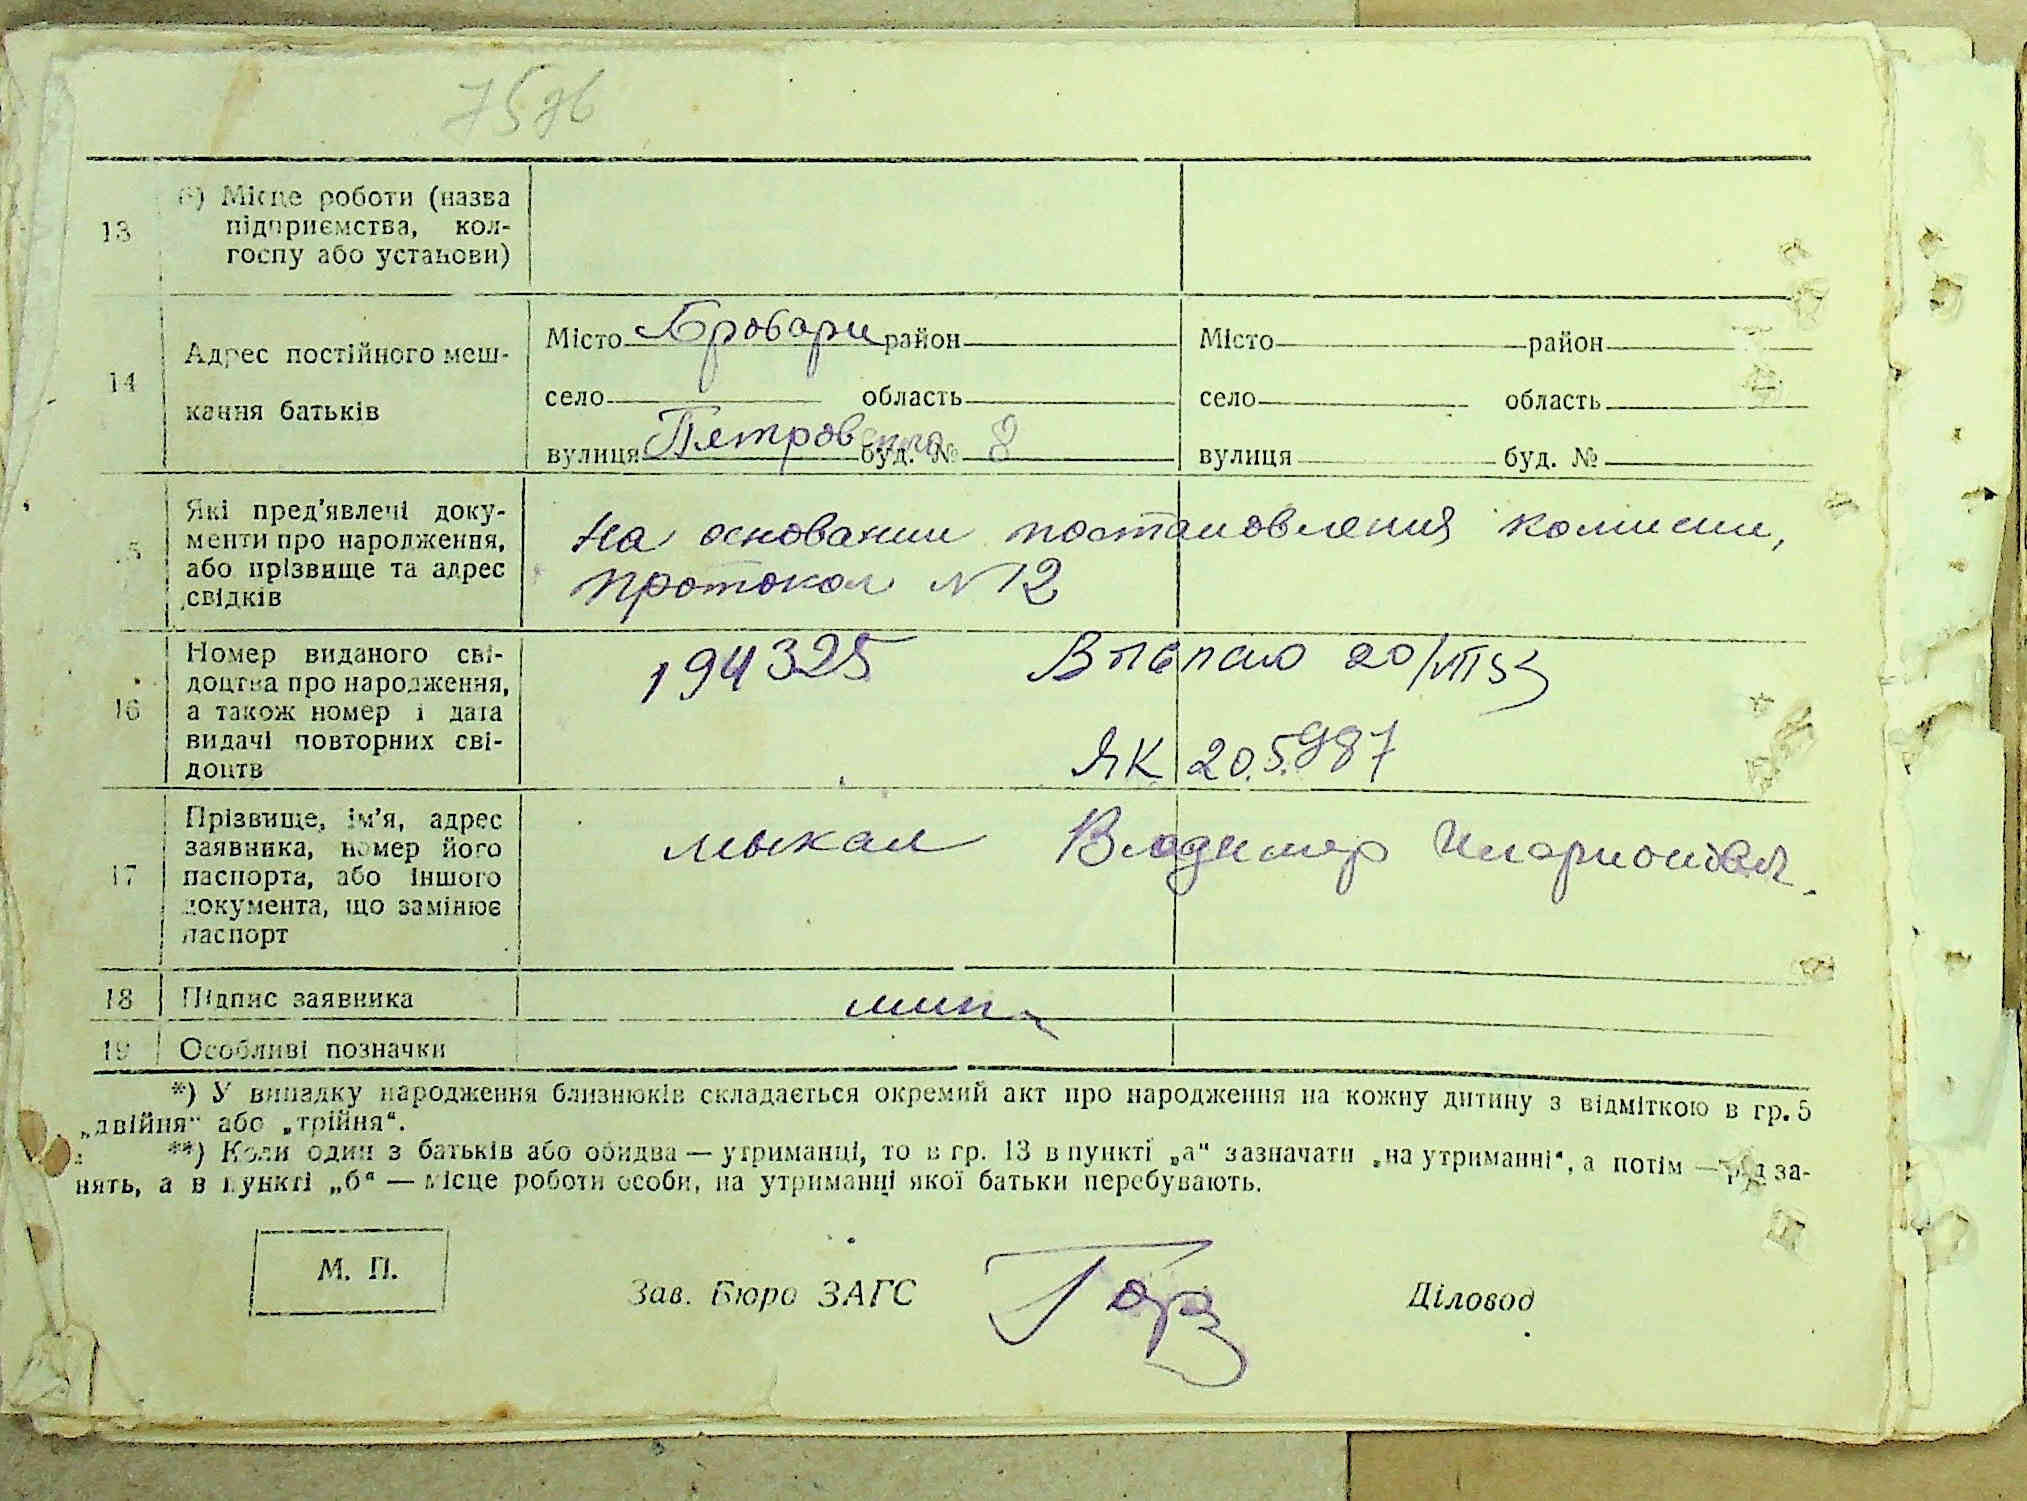 75зв
13 б) Місце роботи (назва
підприємства, кол-
госпу або установи)
14 Адрес постійного меш-
кання батьків
Місто Бровари район
село область
вулиця Петровского буд. № 8
Місто район
село область
вулиця буд. №
Які пред'явлені доку-
менти про народження,
або прізвище та адрес
свідків
На основании постановления комисии,
протокол № 2
16 Номер виданого сві-
доцтва про народження,
а також номер і дата
видачі повторних сві-
доцтв
194325 20/VIII 53
ЯК 205987
17 Прізвище, ім'я, адрес
заявника, номер його
паспорта, або іншого
документа, що замінює
паспорт
Мыкал Владимир Иларионович.
18 Підпис заявника
19 Особливі позначки
*) У випадку народження близнюків складається окремий акт про народження на кожну дитину з відміткою в гр. 5
„двійня“ або „трійня“.
**) Коли один з батьків або обидва — утриманці, то в гр. 13 в пункті „а“ зазначати „на утриманні“, а потім — рід за-
нять, а в пункті „б“ — місце роботи особи, на утриманні якої батьки перебувають.
М. П.
Зав. Бюро ЗАГС
Діловод